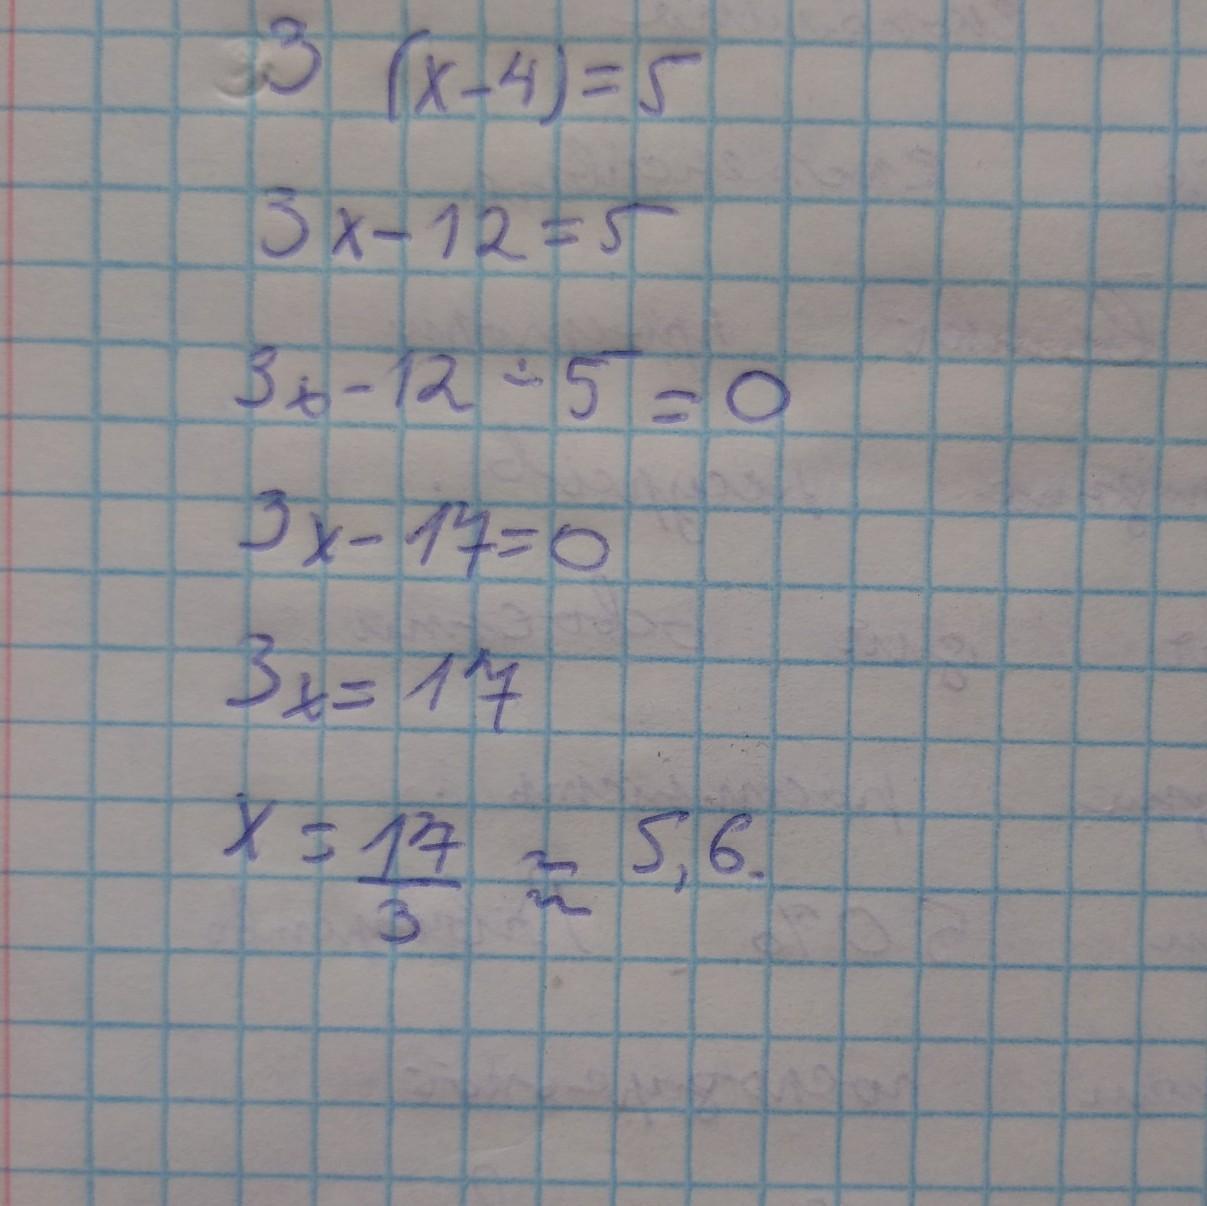 3 (x-4)=5
3x-12=5
3x-12-5=0
3x-17=0
3x=17
x=17/3≈5,6.